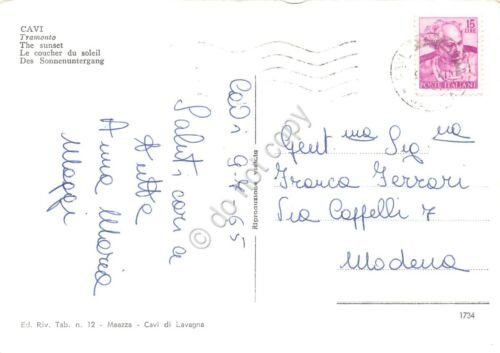 CAVI
Tramonto
The sunset
Le coucher du soleil
Des Sonnenuntergang
15
LIRE
POSTE ITALIANE
Cavi 9-7-65
Saluti cari a
tutte
Anna Maria
Maggi
Riproduzione vietata
do not copy
Gent.ma Sig.na
Franca Ferrari
Via Cappelli 7
Modena
Ed. Riv. Tab. n. 12 - Meazza - Cavi di Lavagna
1734